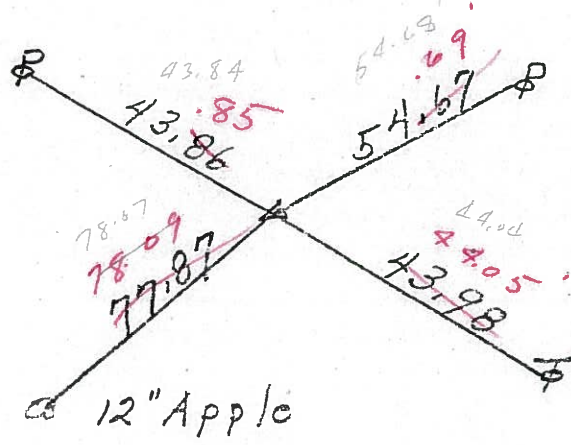 43.84
.85
43.86
54.68
.69
54.67
78.07
78.09
77.87
44.04
44.05
43.98
12" Apple